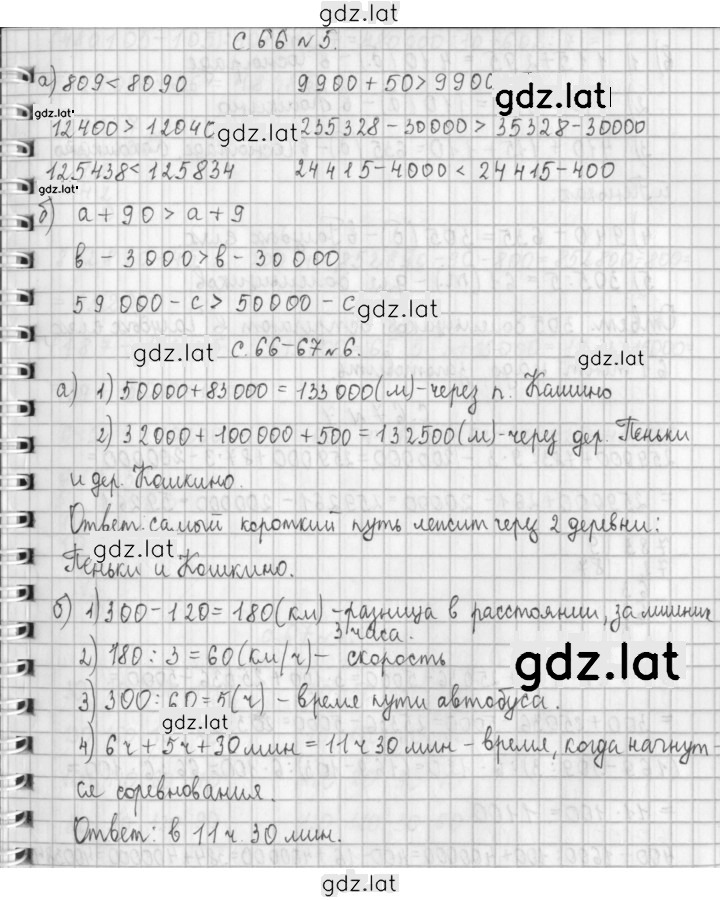 gdz.lat
С. 66 №5.
а) 809 < 8090 9900 + 50 > 9900
gdz.lat
gdz.lat
12400 > 12040 gdz.lat 235328 - 30000 > 35328 - 30000
125438 < 125834 24415 - 4000 < 24415 - 400
gdz.lat
б) а + 90 > а + 9
в - 3000 > в - 30000
59000 - с > 50000 - с gdz.lat
gdz.lat С. 66-67 №6. gdz.lat
а) 1) 50000 + 83000 = 133000 (м) - через п. Кашино
2) 32000 + 100000 + 500 = 132500 (м) - через дер. Пеньки
и дер. Кошкино.
Ответ: самый короткий путь лежит через 2 деревни:
gdz.lat
Пеньки и Кошкино.
б) 1) 300 - 120 = 180 (км) - разница в расстоянии, за лишних
3 часа.
2) 180 : 3 = 60 (км/ч) - скорость
gdz.lat
3) 300 : 60 = 5 (ч) - время пути автобуса.
gdz.lat
4) 6 ч + 5 ч + 30 мин = 11 ч 30 мин - время, когда начнут-
ся соревнования.
Ответ: в 11 ч 30 мин.
gdz.lat